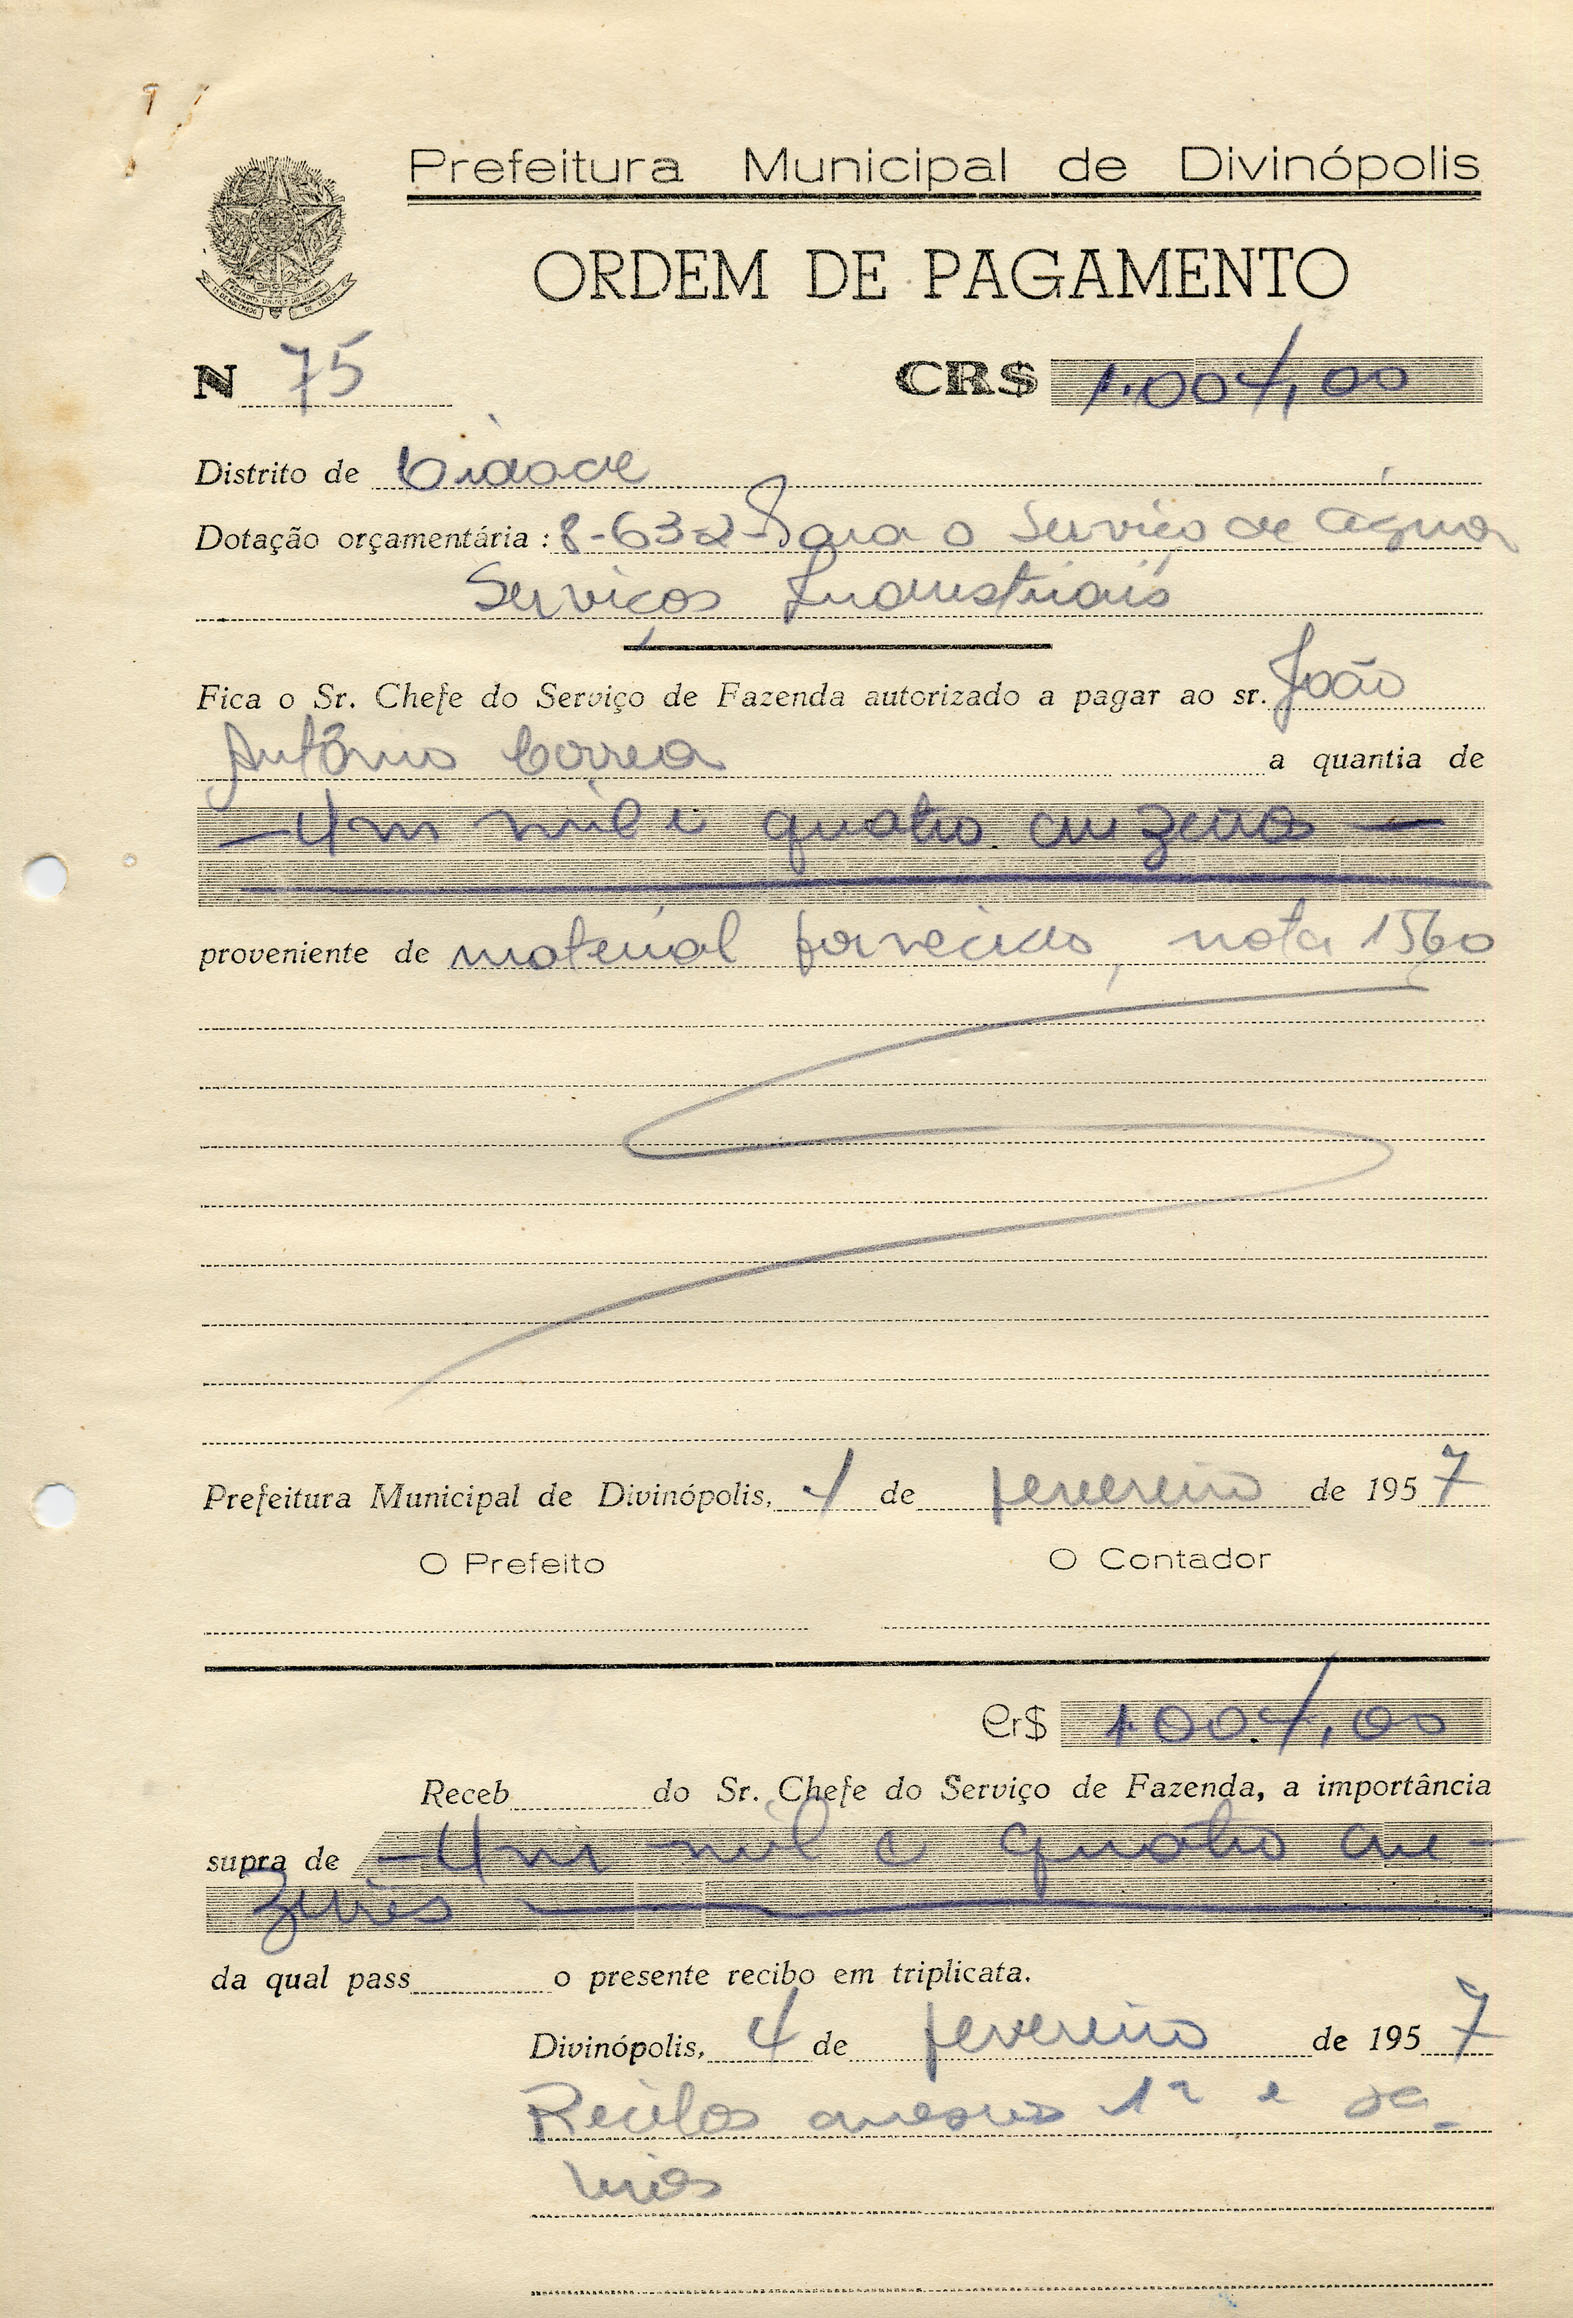 Prefeitura Municipal de Divinópolis
ORDEM DE PAGAMENTO
N 75 CR$ 1.004,00
Distrito de Cidade
Dotação orçamentária: 8-63-2-Para o Serviço de Água
Serviços Industriais
Fica o Sr. Chefe do Serviço de Fazenda autorizado a pagar ao sr. João
Antônio Correa a quantia de
— Um mil e quatro cruzeiros —
proveniente de material fornecido, nota 1560
Prefeitura Municipal de Divinópolis, 4 de fevereiro de 1957
O Prefeito O Contador
Cr$ 1.004,00
Receb do Sr. Chefe do Serviço de Fazenda, a importância
supra de — Um mil e quatro cru-
zeiros
da qual pass o presente recibo em triplicata.
Divinópolis, 4 de fevereiro de 1957
Recibos anexos 1ª e 2ª
vias